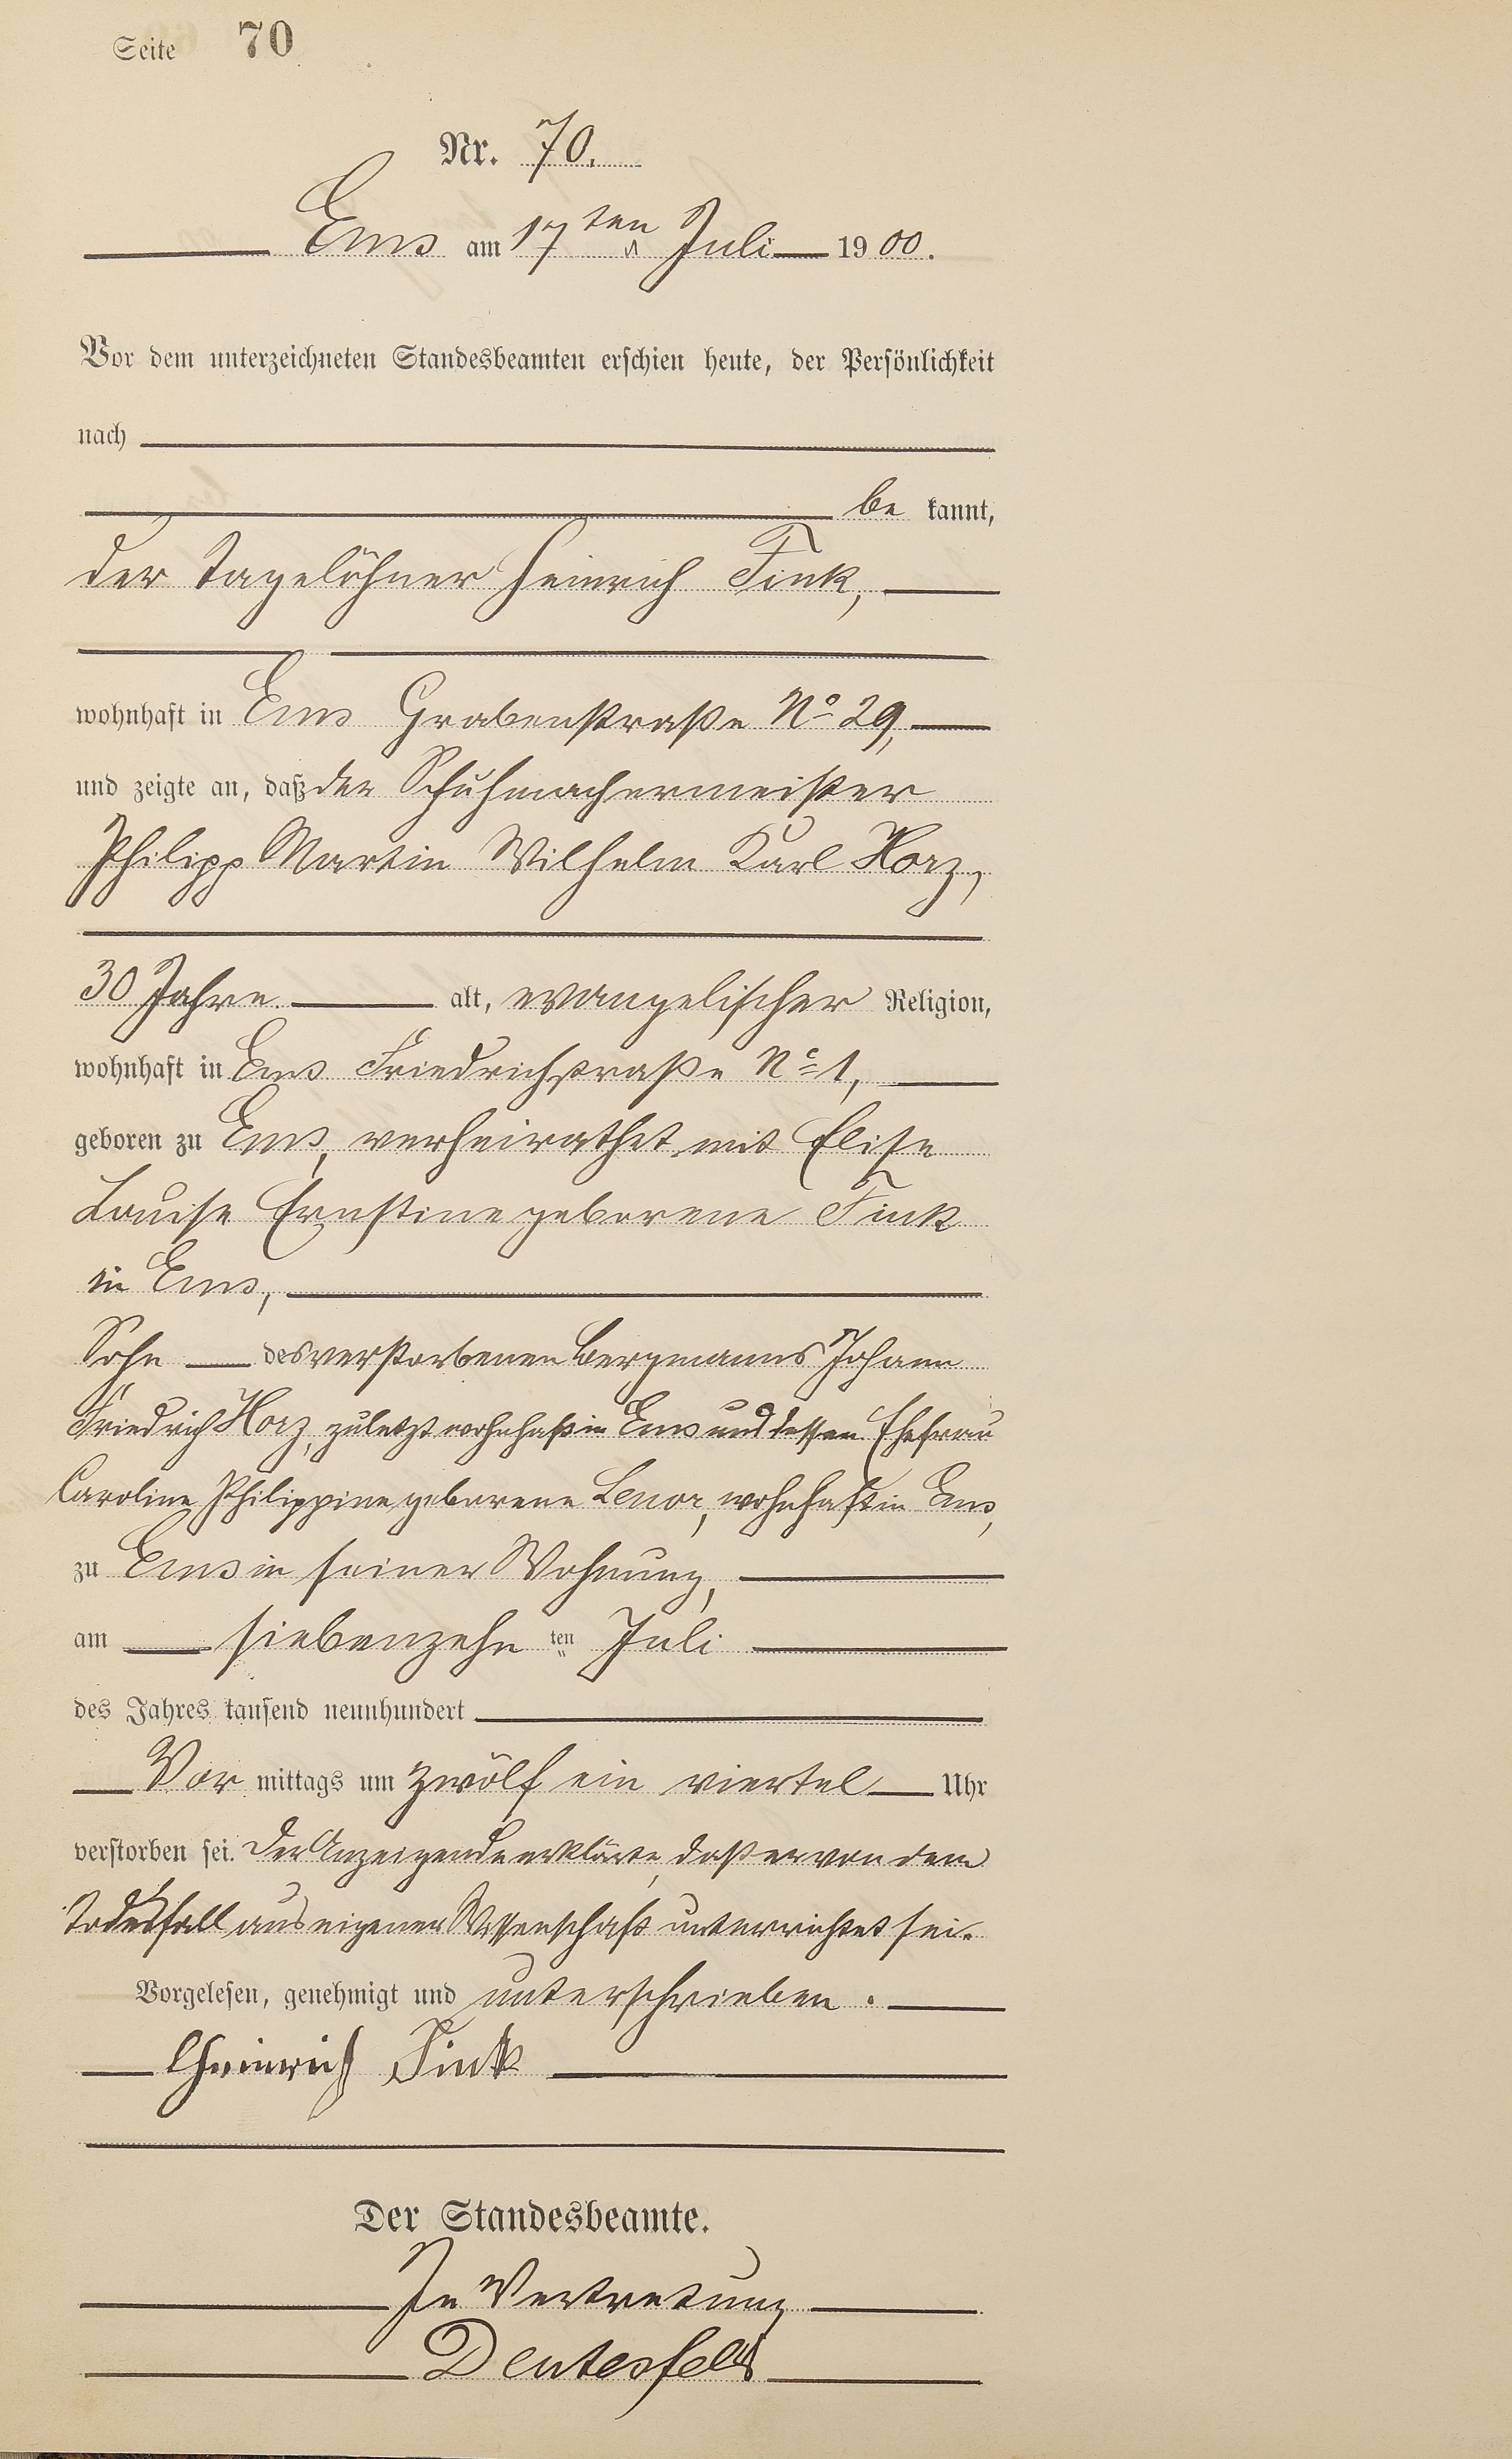 Seite 70
Nr. 70.
Ems am 17ten Juli 1900.
Vor dem unterzeichneten Standesbeamten erschien heute, der Persönlichkeit
nach
be kannt,
der Tagelöhner Heinrich Fink,
wohnhaft in Ems Grabenstraße No 29,
und zeigte an, daß der Schuhmachermeister
Philipp Martin Wilhelm Karl Horz,
30 Jahre alt, evangelischer Religion,
wohnhaft in Ems Friedrichstraße No 1,
geboren zu Ems, verheirathet mit Elise
Louise Ernstine geborene Fink
in Ems,
Sohn des verstorbenen Bergmanns Johann
Friedrich Horz, zuletzt wohnhaft in Ems und dessen Ehefrau
Caroline Philippine geborene Lenor, wohnhaft in Ems,
zu Ems in seiner Wohnung,
am siebenzehn ten Juli
des Jahres tausend neunhundert
Vor mittags um zwölf ein viertel Uhr
verstorben sei. Der Anzeigende erklärte, daß er von dem
Todesfall aus eigener Wissenschaft unterrichtet sei.
Vorgelesen, genehmigt und unterschrieben.
Heinrich Fink
Der Standesbeamte.
In Vertretung